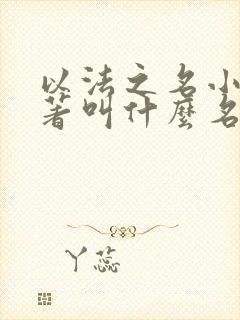 以法之名小
著叫什麼名
丫蕊